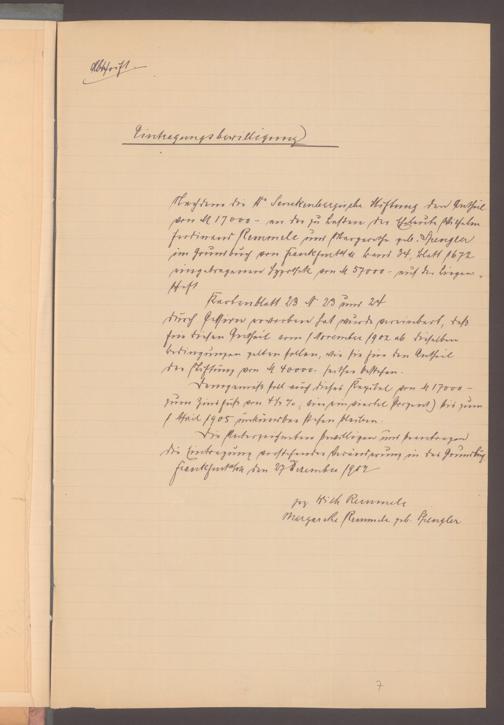 Abschrift
Eintragungsbewilligung
Nachdem die Dr Senckenbergische Stiftung den Antheil
von M 17000 – an der zu Lasten der Eheleute Wilhelm
Ferdinand Remmele und Margarethe geb. Spengler
im Grundbuch von Frankfurt a/M Band 34, Blatt 1672
eingetragenen Hypothek von M 57000 – auf der Liegen-
schaft
Kartenblatt 23 N 23 und 24
durch Cession erworben hat wurde vereinbart, daß
für diesen Antheil vom 1 November 1902 ab dieselben
Bedingungen gelten sollen, wie sie für den Antheil
der Stiftung von M 40000. seither bestehen.
Demgemäß soll auch dieses Kapital von M 17000 –
zum Zinsfuß von 4¼%, vier ein viertel Prozent) bis zum
1 April 1905 unkündbar stehen bleiben.
Die Unterzeichneten bewilligen und beantragen
die Eintragung vorstehender Veränderung in das Grundbuch
Frankfurt a/M den 27 Dezember 1902
gez Wilh Remmele
Margarethe Remmele geb. Spengler
7